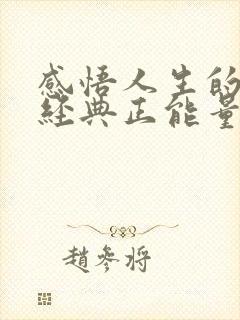 感悟人生的
經典正能量
趙參將